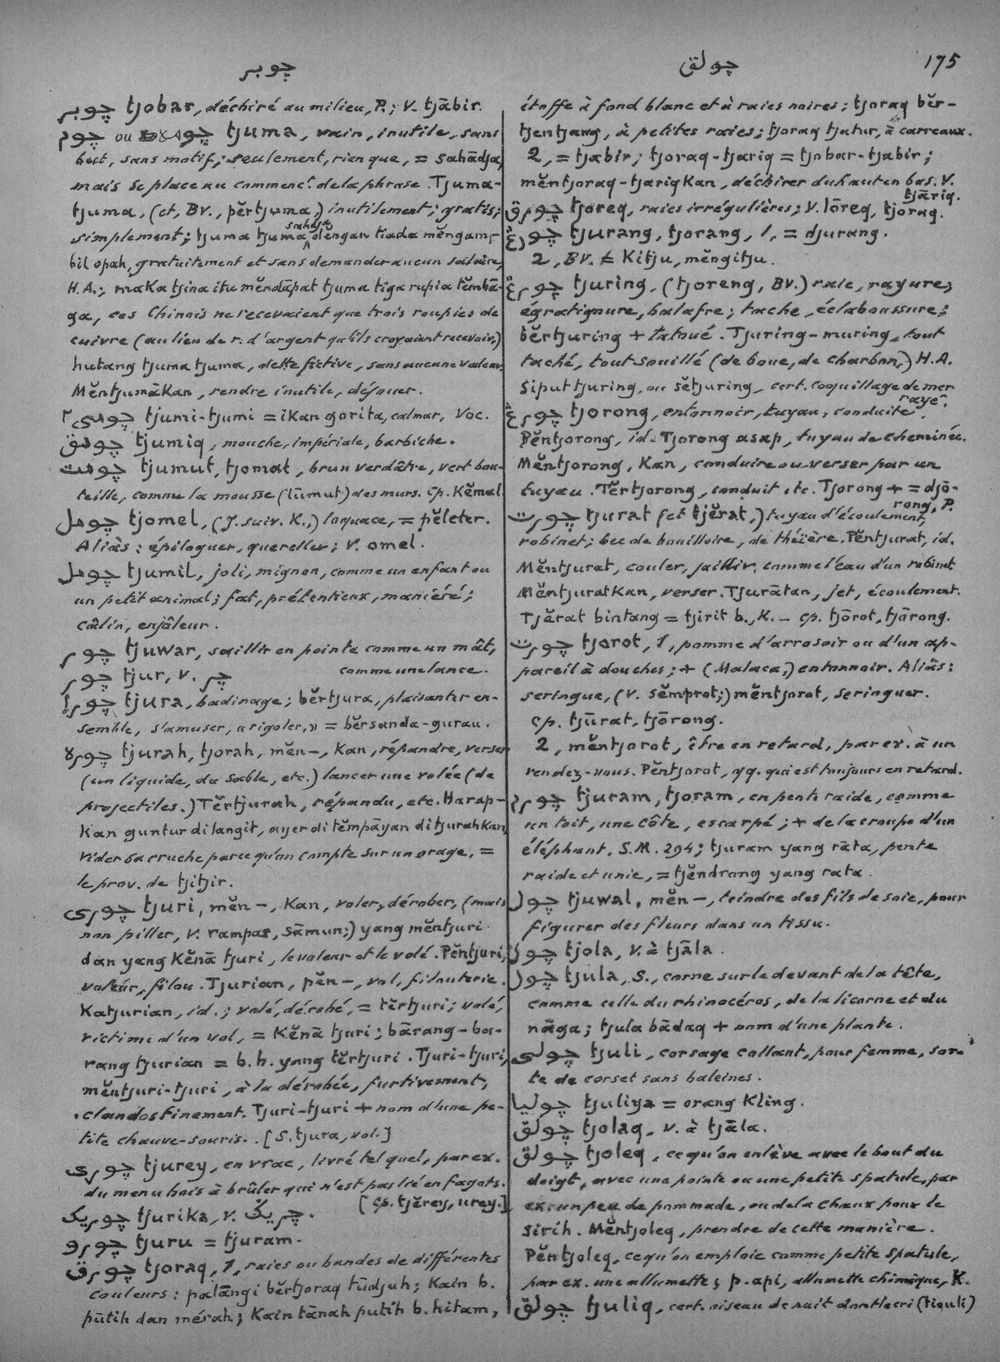 چوبر
چولق
175
چوبر tjobar, déchiré au milieu, P.; V. tjābir.
چوم ou tjuma, vain, inutile, sans
but, sans motif; seulement, rien que, = sahādja,
mais se place au commenct. de la phrase. Tjuma-
tjuma, (et, BV., pĕrtjuma,) inutilement; gratis;
simplement; tjuma tjuma sahdja dĕngan tiada mĕngam-
bil opah, gratuitement et sans demander aucun salaire,
H.A.; maKa tjina itu mĕndāpat tjuma tiga rupia tĕmbā-
ga, ces Chinois ne recevaient que trois roupies de
cuivre (au lieu de r. d'argent qu'ils croyaient recevoir,)
hutang tjuma tjuma, dette fictive, sans aucune valeur.
MĕntjumāKan, rendre inutile, déjouer.
چومي٢ tjumi-tjumi = iKan gorita, calmar, Voc.
چوميق tjumiq, mouche, impériale, barbiche.
چومت tjumut, tjomat, brun verdâtre, vert bou-
teille, comme la mousse (lūmut) des murs. Cp. Kĕmal.
چومل tjomel, (J. suiv. K.,) loquace, = pĕleter.
Aliàs: épiloguer, quereller; V. omel.
چومل tjumil, joli, mignon, comme un enfant ou
un petit animal; fat, prétentieux, maniéré;
câlin, enjôleur.
چور tjuwar, saillir en pointe comme un mât,
comme une lance.
چور tjur, V. چر
چورا tjura, badinage; bĕrtjura, plaisanter en-
semble, s'amuser, «rigoler,» = bĕrsanda-gurau.
چوره tjurah, tjorah, mĕn-, Kan, répandre, verser
(un liquide, du sable, etc.) lancer une volée (de
projectiles.) Tĕrtjurah, répandu, etc. Harap-
Kan guntur di langit, ayer di tĕmpāyan di tjurahKan,
vider sa cruche parce qu'on compte sur un orage, =
le prov. de tjitjir.
چوري tjuri, mĕn-, Kan, voler, dérober, (mais
non piller, V. rampas, sāmun;) yang mĕntjuri
dan yang Kĕnā tjuri, le voleur et le volé. Pĕntjuri,
voleur, filou. Tjurian, pĕn-, vol, filouterie.
Katjurian, id.; volé, dérobé, = tĕrtjuri; volé,
victime d'un vol, = Kĕnā tjuri; bārang-ba-
rang tjurian = b.h. yang tĕrtjuri. Tjuri-tjuri,
mĕntjuri-tjuri, à la dérobée, furtivement,
clandestinement. Tjuri-tjuri + nom d'une pe-
tite chauve-souris. [S. tjura, vol.]
چوري tjurey, en vrac, livré tel quel, par ex.
du menu bois à brûler qui n'est pas lié en fagots.
[Cp. tjĕrey, urey.]
چوريک tjurika, V. چريک.
چورو tjuru = tjuram.
چورق tjoraq, 1, raies ou bandes de différentes
couleurs: palāngi bĕrtjoraq tūdjuh; Kain b.
pūtih dan mérah; Kain tānah putih b. hitam,
étoffe à fond blanc et à raies noires; tjoraq bĕr-
tjentjang, à petites raies; tjoraq tjatur, à carreaux.
2, = tjabir; tjoraq-tjariq = tjobar-tjabir;
mĕntjoraq-tjariqKan, déchirer du haut en bas. V.
tjāriq.
چورق tjoreq, raies irrégulières; V. lōreq, tjoraq.
چورڠ tjurang, tjorang, 1, = djurang.
2, BV. = Kitju, mĕngitju.
چورڠ tjuring, (tjoreng, BV.) raie, rayure,
égratignure, balafre; tache, éclaboussure;
bĕrtjuring + tatoué. Tjuring-muring, tout
taché, tout souillé (de boue, de charbon,) H.A.
Siput tjuring, ou sĕtjuring, cert. coquillage de mer
rayé.
چورڠ tjorong, entonnoir, tuyau, conduite.
Pĕntjorong, id. Tjorong asap, tuyau de cheminée.
Mĕntjorong, Kan, conduire ou verser par un
tuyau. Tĕrtjorong, conduit etc. Tjorong + = djō-
rong, P.
چورت tjurat (et tjĕrat,) tuyau d'écoulement,
robinet; bec de bouilloire, de théière. Pĕntjurat, id.
Mĕntjurat, couler, jaillir, comme l'eau d'un robinet
MĕntjuratKan, verser. Tjurātan, jet, écoulement.
Tjĕrat bintang = tjirit b., K. – cp. tjōrot, tjārong.
چورت tjorot, 1, pomme d'arrosoir ou d'un ap-
pareil à douches; + (Malaca,) entonnoir. Aliàs:
seringue, (V. sĕmprot;) mĕntjorot, seringuer.
cp. tjūrat, tjōrong.
2, mĕntjorot, être en retard, par ex. à un
rendez-vous. Pĕntjorot, qq. qui est toujours en retard.
چورم tjuram, tjoram, en pente raide, comme
un toit, une côte, escarpé; + de la croupe d'un
éléphant. S.M. 294; tjuram yang rāta, pente
raide et unie, = tjĕndrong yang rata.
چول tjuwal, mĕn-, teindre des fils de soie, pour
figurer des fleurs dans un tissu.
چول tjola, V. à tjāla.
چول tjula, S., corne sur le devant de la tête,
comme celle du rhinocéros, de la licorne et du
nāga; tjula bādaq + nom d'une plante.
چولي tjuli, corsage collant, pour femme, sor-
te de corset sans baleines.
چوليا tjuliya = orang Kling.
چولق tjolaq, V. à tjāla.
چولق tjoleq, ce qu'on enlève avec le bout du
doigt, avec une pointe ou une petite spatule, par
ex. un peu de pommade, ou de la chaux pour le
sirih. Mĕntjoleq, prendre de cette manière.
Pĕntjoleq, ce qu'on emploie comme petite spatule,
par ex. une allumette; p.-api, allumette chimique, K.
چولق tjuliq, cert. oiseau de nuit dont le cri (tiquli)